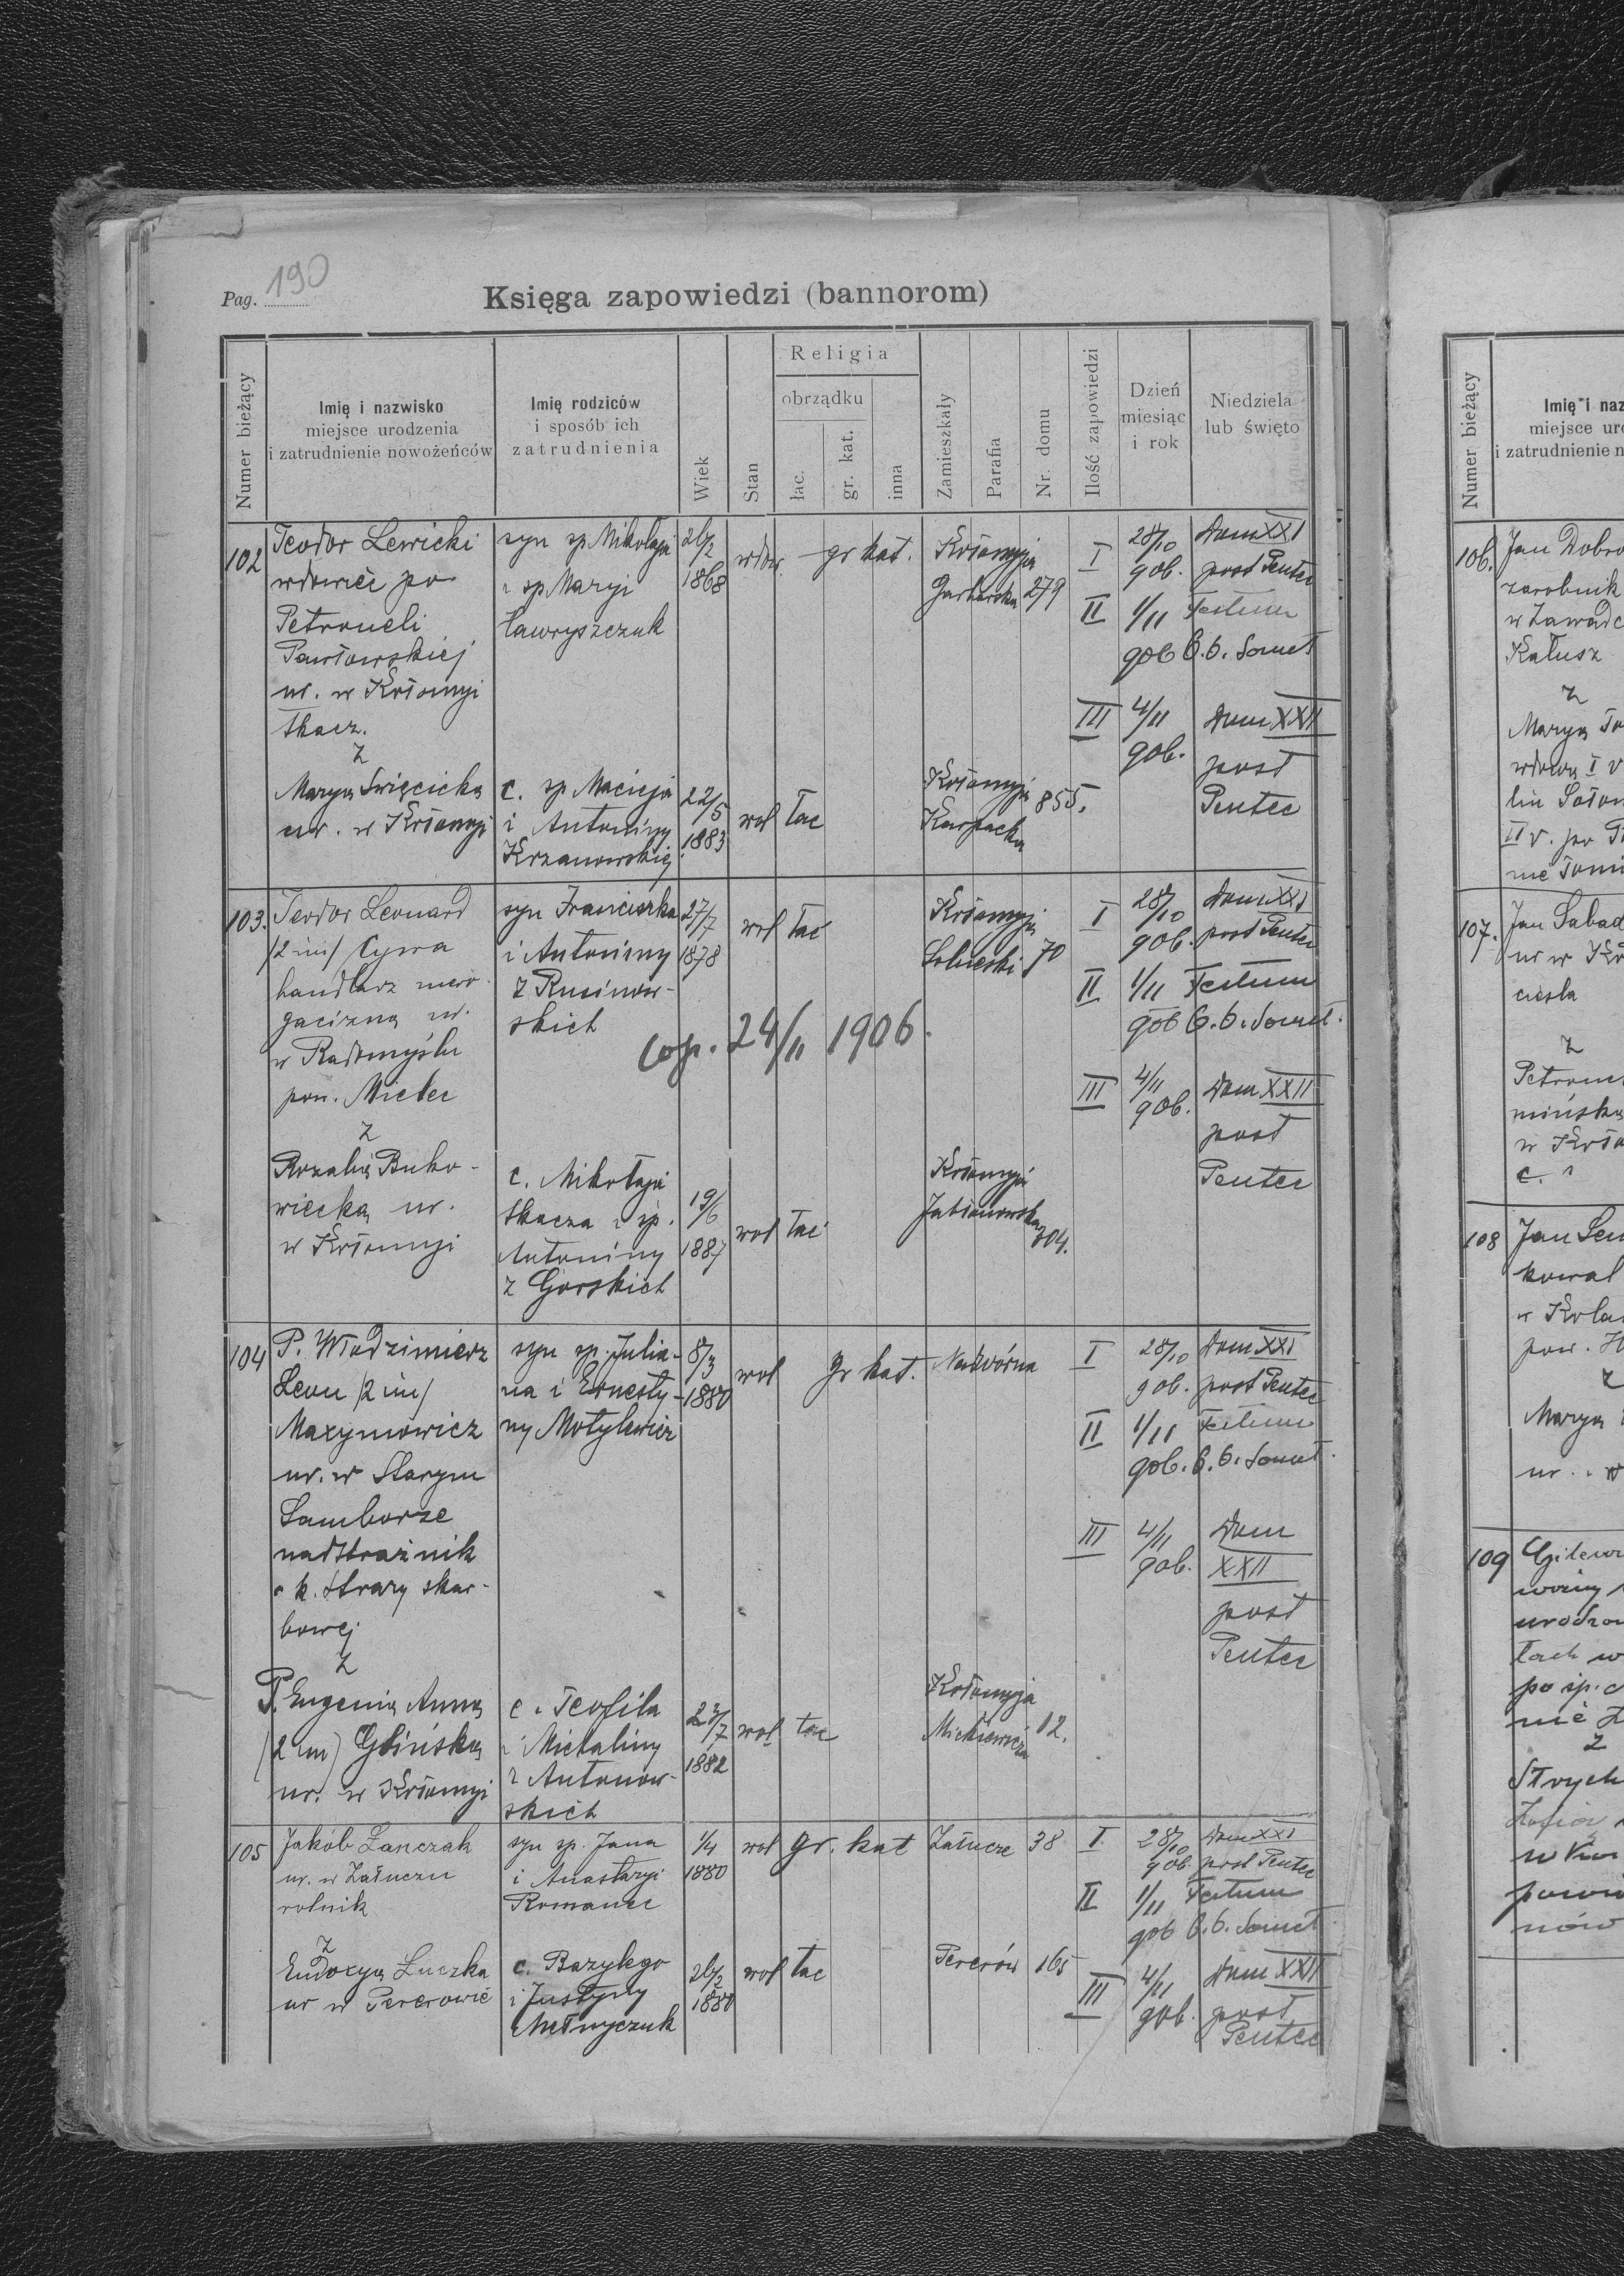 Pag. 190
Księga zapowiedzi (bannorom)
Numer bieżący
Imię i nazwisko
miejsce urodzenia
i zatrudnienie nowożeńców
Imię rodziców
i sposób ich
zatrudnienia
Wiek
Stan
Religia
obrządku
łac.
gr. kat.
inna
Zamieszkały
Parafia
Nr. domu
Ilość zapowiedzi
Dzień
miesiąc
i rok
Niedziela
lub święto
102
Teodor Lewicki
wdowiec po
Petroneli
Pawłowskiej
ur. w Kołomyi
tkacz.
z
Maryą Święcicką
ur. w Kołomyi
syn sp Mikołaja
i sp. Maryi
Ławryszczuk
c. sp Macieja
i Antoniny
Krzanowskiej
26/2
1868
wdow.
gr kat.
Kołomyja
Garbarska 279
22/5
1883
wol łac
Kołomyja
Karpacka
855.
I
28/10
906.
Dom XXI
post Pentec
II
1/11
906
Festum
O.O. Sanct
III
4/11
906.
Dom XXII
post
Pentec
103.
Teodor Leonard
/2 im/ Cywa
handlarz niero-
gacizną ur.
w Radomyślu
pow. Mielec
z
Rozalią Buko-
wiecką ur.
w Kołomyi
syn Franciszka
i Antoniny
z Rusinow-
skich
c. Mikołaja
tkacza i sp.
Antoniny
z Gorskich
27/7
1878
wol łac
Kołomyja
Sobieski 70
cop. 24/11 1906.
19/6
1887
wol łac
Kołomyja
Jabłonowska
304.
I
28/10
906.
Dom XXI
post Pentec
II
1/11
906
Festum
O.O. Sanct.
III
4/11
906.
Dom XXII
post
Pentec
104
P. Włodzimierz
Leon /2 im/
Maxymowicz
ur. w Starym
Samborze
nadstrażnik
c k. straży skar-
bowej
z
P. Eugenią Anną
(2 im) Glińską
ur. w Kołomyi
syn sp. Julia-
na i Ernesty-
ny Motylewicz
c. Teofila
i Michaliny
z Antonow-
skich
8/3
1880
wol
gr kat.
Nadwórna
23/7
1882
wol łac
Kołomyja
Mickiewicza
12.
I
28/10
906.
Dom XXI
post Pentec
II
1/11
906.
Festum
O.O. Sanct.
III
4/11
906.
Dom
XXII
post
Pentec
105
Jakób Łanczak
ur. w Załuczu
rolnik
z
Eudocyą Łuczka
ur w Pererowie
syn sp. Jana
i Anastazyi
Romanec
c. Bazylego
i Justyny
Mełnyczuk
1/4
1880
wol gr. kat
Załucze 38
26/2
1880
wol łac
Pererów 165
I
28/10
906.
Dom XXI
post Pentec
II
1/11
906
Festum
O.O. Sanct.
III
4/11
906.
Dom XXII
post
Pentec
Numer bieżący
Imię i naz
miejsce uro
i zatrudnienie n
106.
Jan Dobro
zarobnik
w Zawadc
Kałusz
z
Marya
wdową I v
II v. po
107.
Jan Sabad
ur w Ko
cieśla
z
Petrone
mińską
w Koło
c. i
108
Jan Sen
kowal
pow. H
z
Marya
ur.
109
woźny
urodzon
łach w
po śp. c
nie
z
Strych
Zofią
w Kor
powi
nów